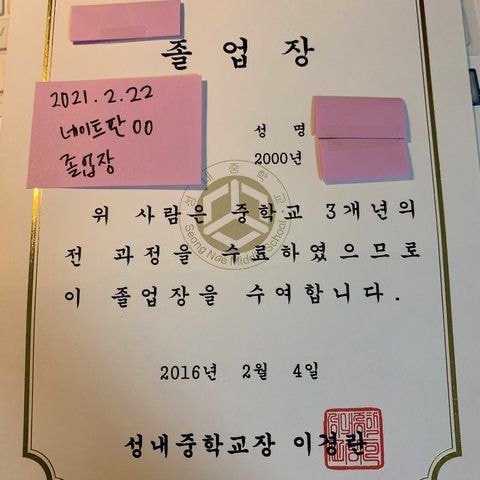 졸업장
2021.2.22
네이트판 00
졸업장
성 명
2000년
성내중학교
Seong Nae Middle School
위 사람은 중학교 3개년의
전 과정을 수료하였으므로
이 졸업장을 수여합니다.
2016년 2월 4일
성내중학교장 이경란